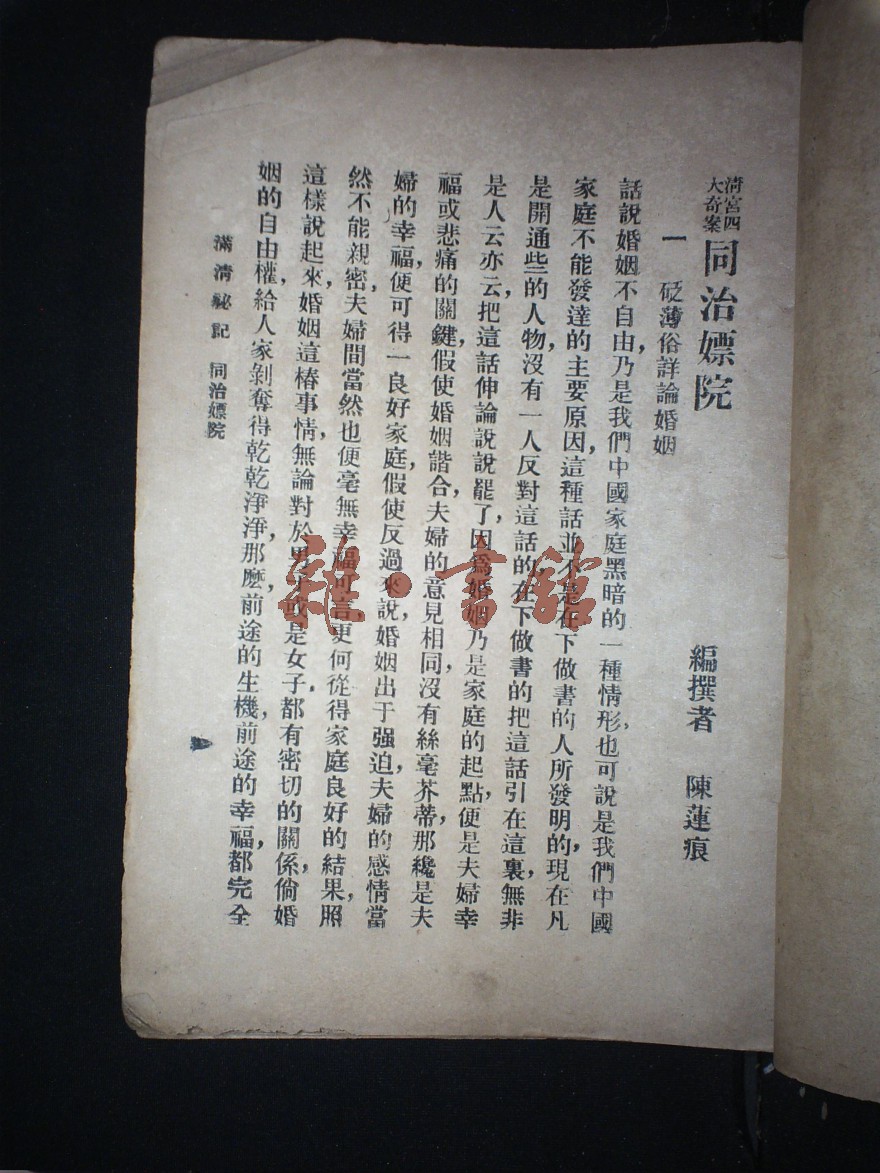 清宮四大奇案 同治嫖院
編撰者 陳蓮痕
一 砭薄俗詳論婚姻
話說婚姻不自由乃是我們中國家庭黑暗的一種情形,也可說是我們中國
家庭不能發達的主要原因,這種話並不是在下做書的人所發明的,現在凡
是開通些的人物,沒有一人反對這話的,在下做書的把這話引在這裏,無非
是人云亦云,把這話伸論說說罷了,因爲婚姻乃是家庭的起點,便是夫婦幸
福或悲痛的關鍵,假使婚姻諧合,夫婦的意見相同,沒有絲毫芥蒂,那纔是夫
婦的幸福,便可得一良好家庭,假使反過來說,婚姻出于强迫,夫婦的感情當
然不能親密,夫婦間當然也便毫無幸福可言,更何從得家庭良好的結果,照
這樣說起來,婚姻這樁事情,無論對於男子或是女子,都有密切的關係,倘婚
姻的自由權,給人家剝奪得乾乾淨淨,那麽前途的生機,前途的幸福,都完全
滿清祕記 同治嫖院
雜·書館